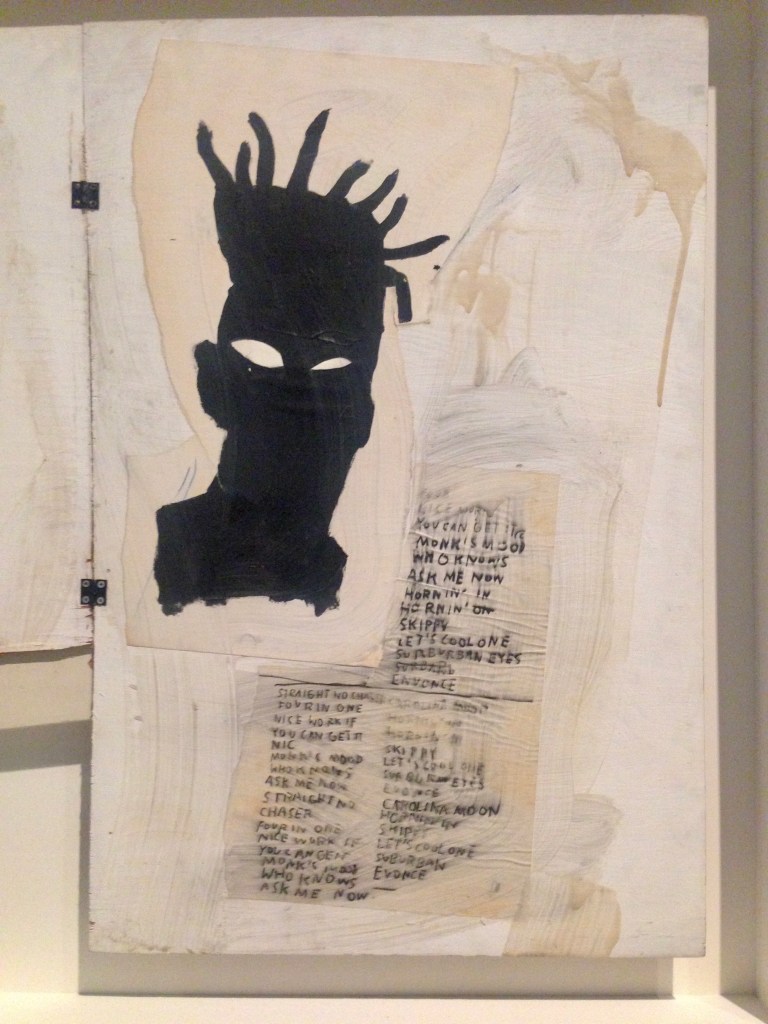 FOUR
NICE WORK
YOU CAN GET IT
MONK'S MOOD
WHO KNOWS
ASK ME NOW
HORNIN' IN
HORNIN' ON
SKIPPY
LET'S COOL ONE
SUBURBAN EYES
EVONCE
STRAIGHT NO CHASER
FOUR IN ONE
NICE WORK IF
YOU CAN GET IT
NIC
MONK'S MOOD
WHO KNOWS
ASK ME NOW
STRAIGHT NO
CHASER
FOUR IN ONE
NICE WORK IF
YOU CAN GET
MONK'S MOOD
WHO KNOWS
ASK ME NOW
CAROLINA MOON
HORNIN' IN
HORNIN' IN
SKIPPY
LET'S COOL ONE
SUBURBAN EYES
EVONCE
CAROLINA MOON
HORNIN' IN
SKIPPY
LET'S COOL ONE
SUBURBAN
EVONCE